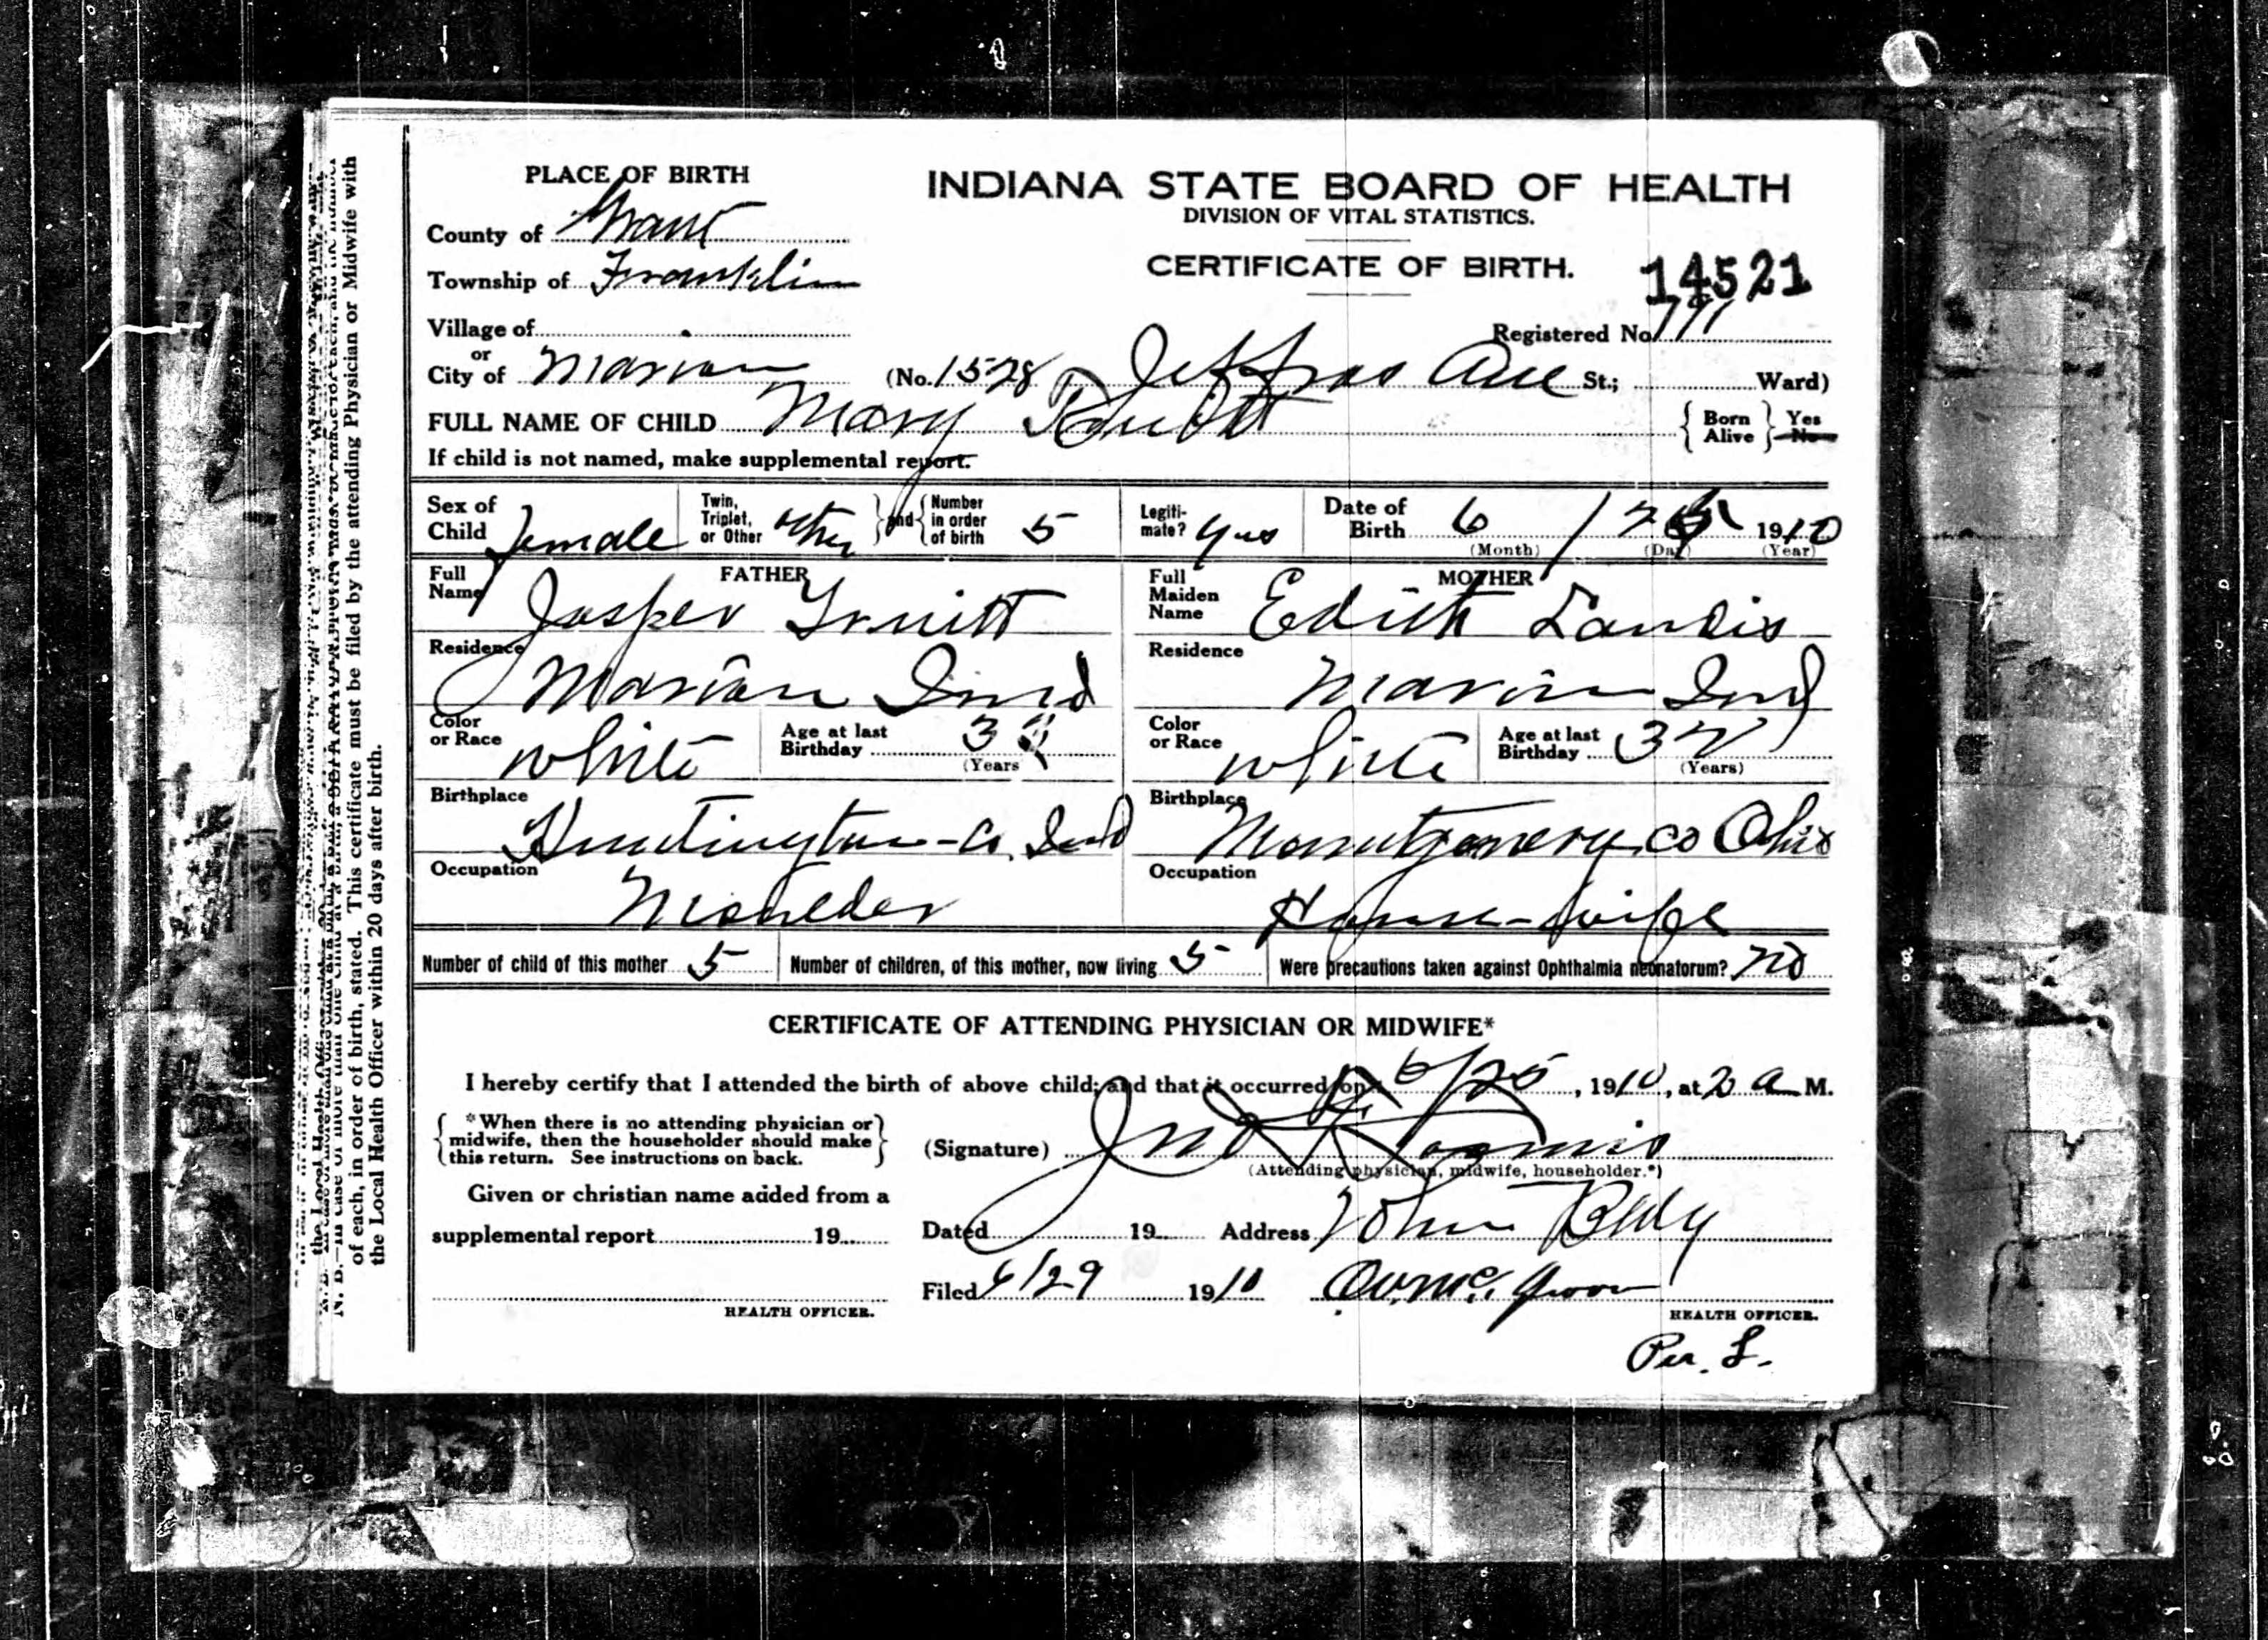 PLACE OF BIRTH
INDIANA STATE BOARD OF HEALTH
DIVISION OF VITAL STATISTICS.
County of Grant
CERTIFICATE OF BIRTH.
14521
Township of Franklin
Village of
Registered No. 791
or
City of Marion (No. 1528 Jeffras Ave St.; Ward)
FULL NAME OF CHILD Mary { Born Alive } Yes No
If child is not named, make supplemental report.
Sex of Child female
Twin, Triplet, or Other other } and { Number in order of birth 5
Legiti-mate? yes
Date of Birth 6 / 1910
(Month) (Day) (Year)
FATHER
Full Name Jasper Truitt
MOTHER
Full Maiden Name Edith Landis
Residence Marion Ind
Residence Marion Ind
Color or Race white
Age at last Birthday (Years
Color or Race white
Age at last Birthday 37 (Years)
Birthplace Huntington-Co. Ind
Birthplace Montgomery co Ohio
Occupation Moulder
Occupation House-wife
Number of child of this mother 5
Number of children, of this mother, now living 5
Were precautions taken against Ophthalmia neonatorum? no
CERTIFICATE OF ATTENDING PHYSICIAN OR MIDWIFE*
I hereby certify that I attended the birth of above child; and that it occurred on 6/25, 1910, at 2 a M.
{ *When there is no attending physician or
midwife, then the householder should make
this return. See instructions on back. }
(Signature)
(Attending physician, midwife, householder.*)
Given or christian name added from a
supplemental report 19
Dated 19 Address
Filed 6/29 1910
HEALTH OFFICER.
HEALTH OFFICER.
Per. L.
of each, in order of birth, stated. This certificate must be filed by the attending Physician or Midwife with
the Local Health Officer within 20 days after birth.